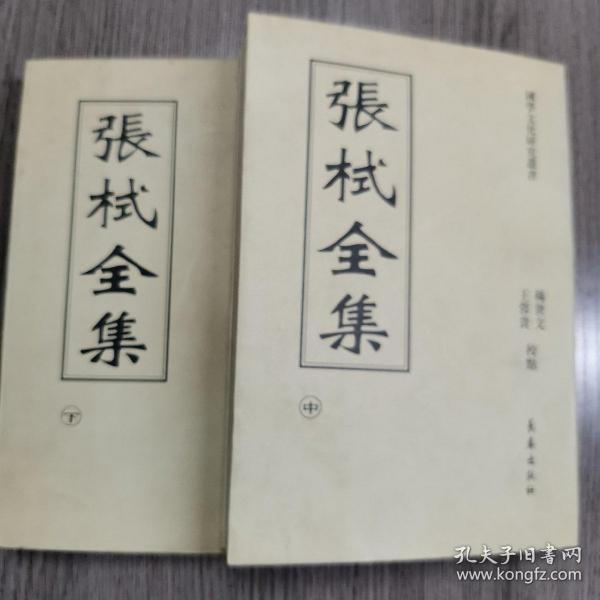 張栻全集
下
張栻全集
中
國學文化研究叢書
楊世文
王蓉貴
校點
長春出版社
孔夫子旧書网
www.kongfz.com